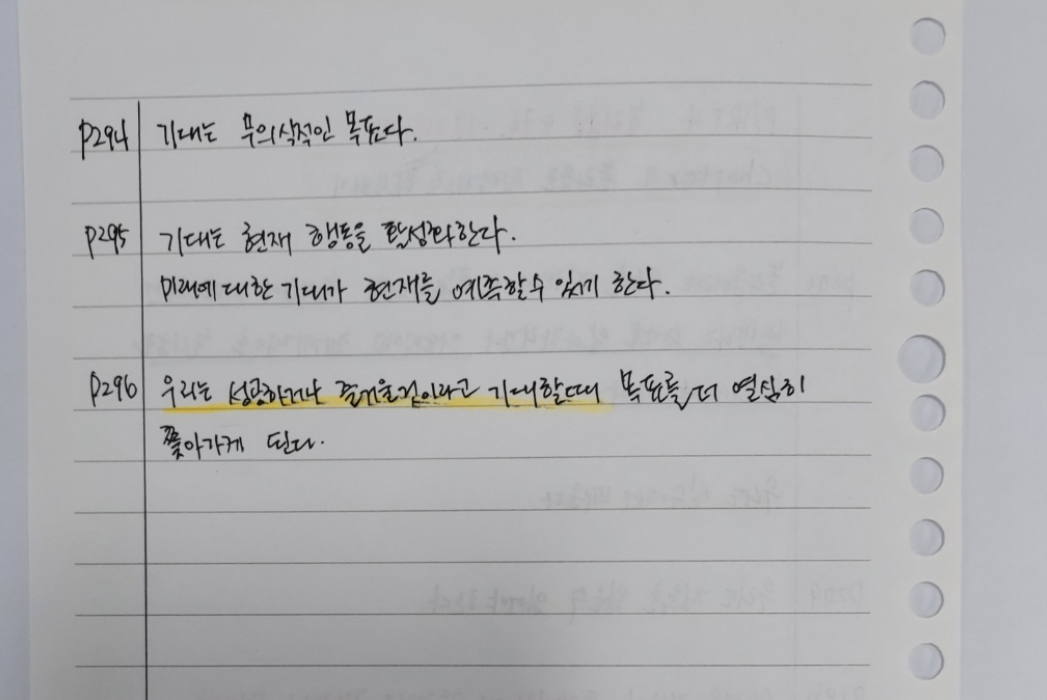 P294 기대는 무의식적인 목표다.
P295 기대는 현재 행동을 활성화한다.
미래에 대한 기대가 현재를 예측할수 있게 한다.
P296 우리는 성공하거나 즐거울것이라고 기대할때 목표를 더 열심히
쫓아가게 된다.